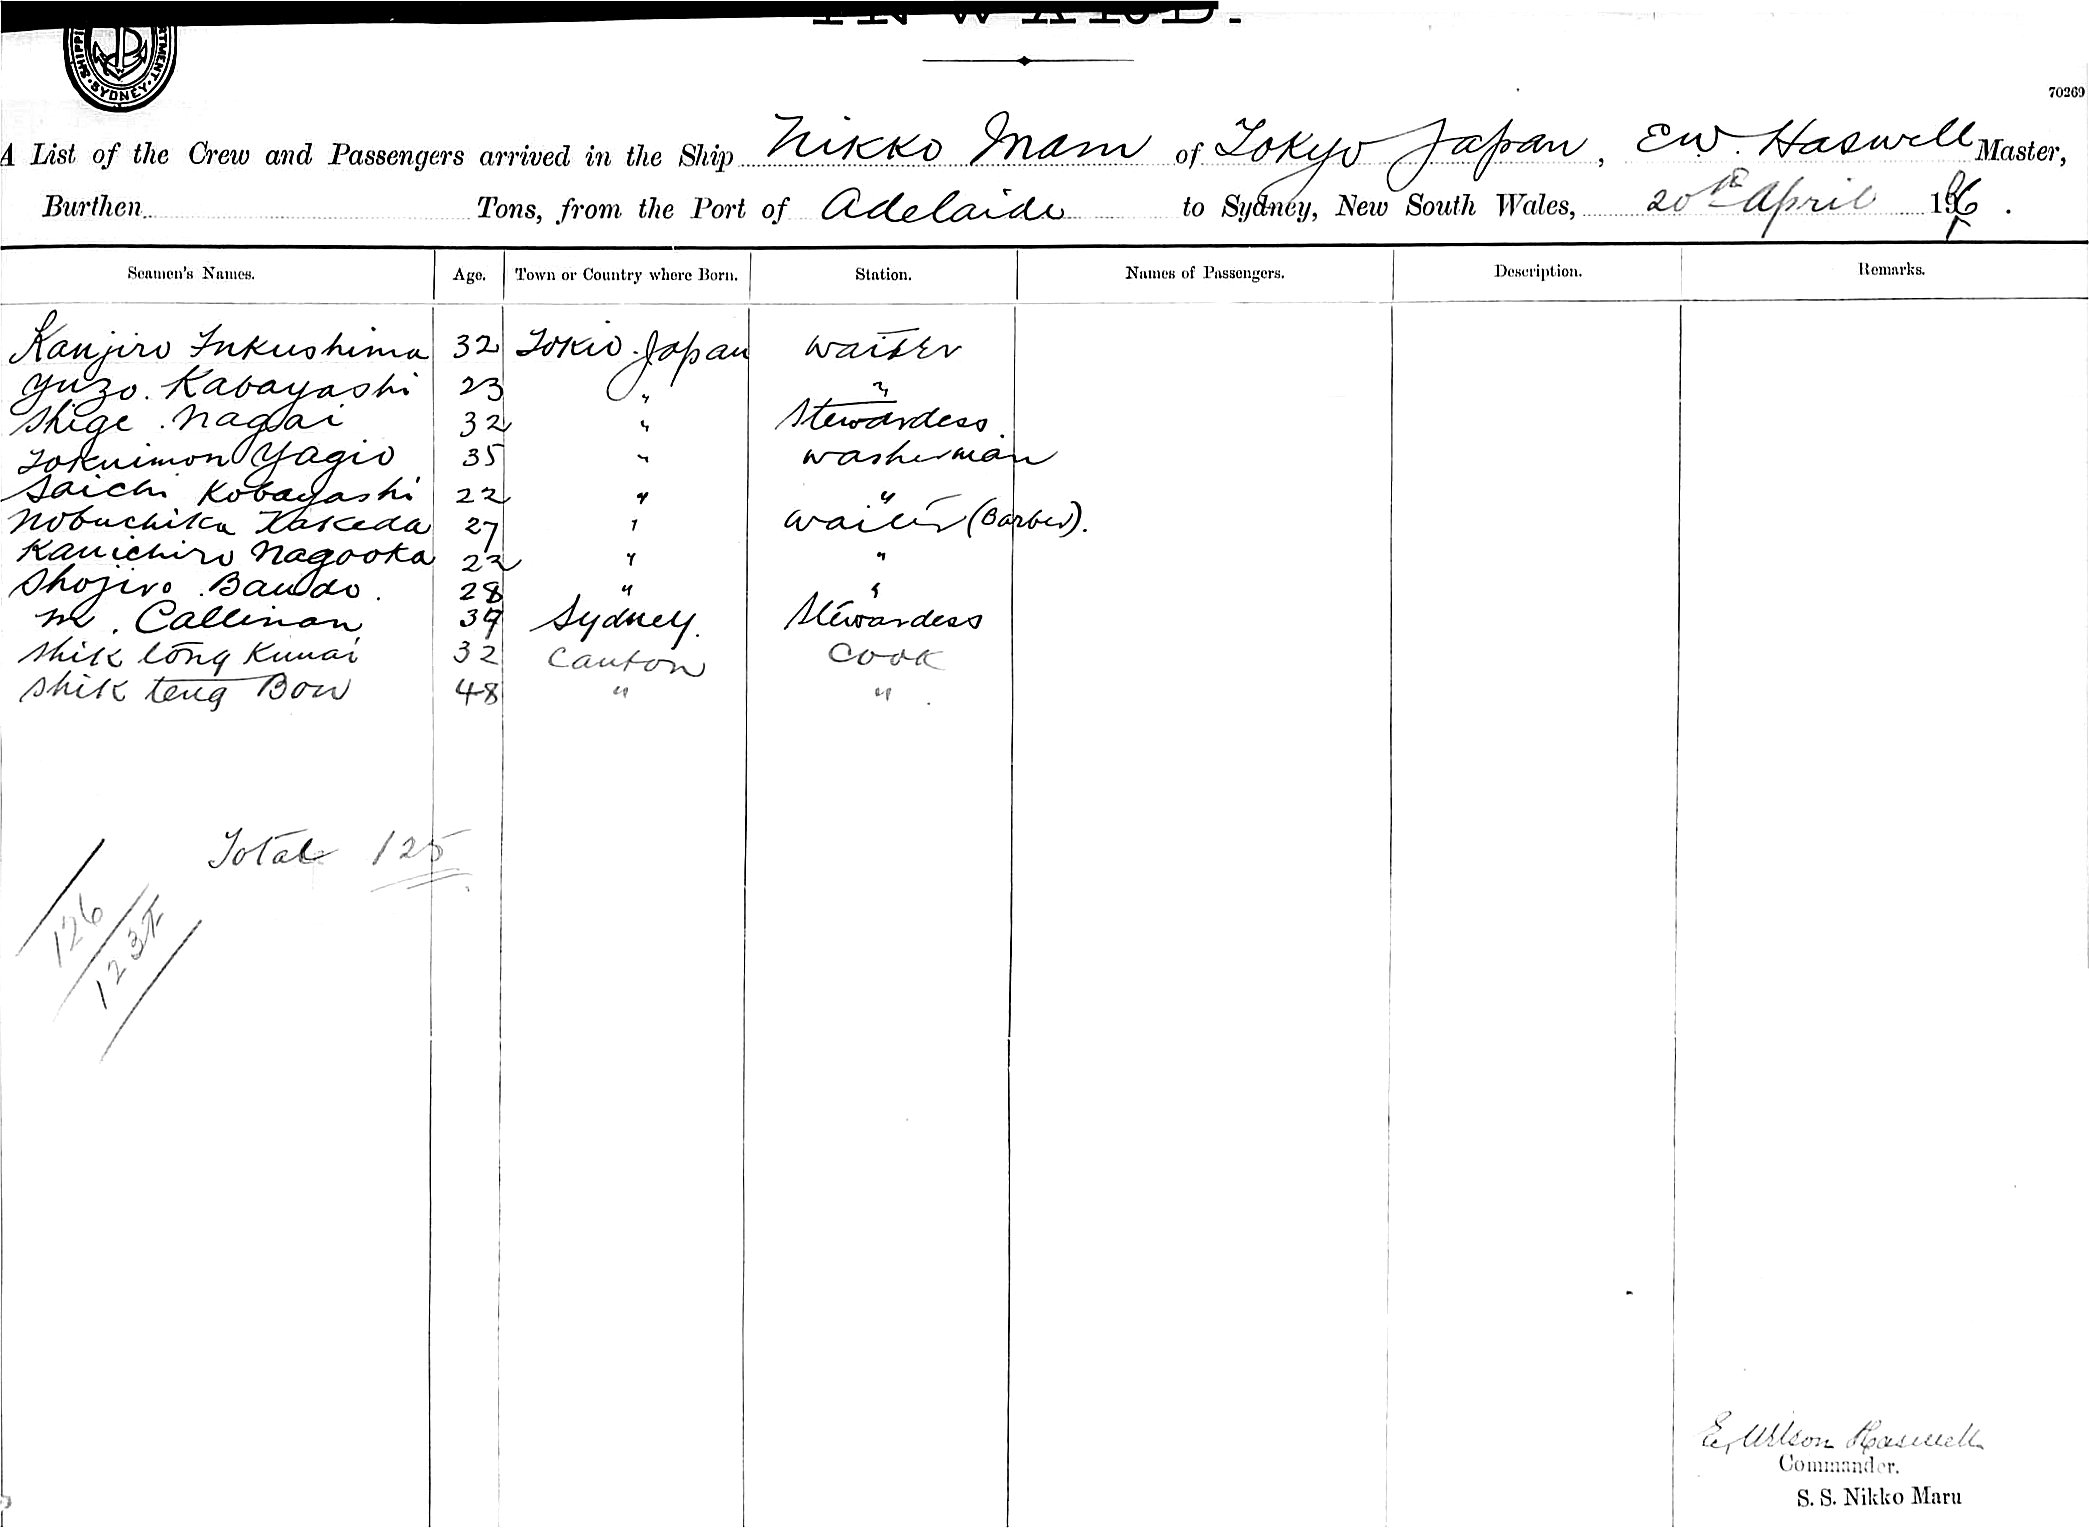 INWARD.
SHIPPI
RTMENT
SYDNEY
70269
A List of the Crew and Passengers arrived in the Ship Nikko Maru of Tokyo Japan, E.W. Haswell Master,
Burthen Tons, from the Port of Adelaide to Sydney, New South Wales, 20th April 196.
Seamen's Names. Age. Town or Country where Born. Station. Names of Passengers. Description. Remarks.
Kanjiro Fukushima 32 Tokio Japan waiter
Yuzo. Kabayashi 23 " "
Shige Nagai 32 " Stewardess.
Tokuimon Yagio 35 " washerman
Saichi Kobayashi 22 " "
Nobuchika Takeda 27 " waiter (Barber).
Kanichiro Nagooka 22 " "
Shojiro Bando. 28 " "
M. Callinan 39 Sydney. Stewardess
Shik long Kumai 32 Canton Cook
Shik teng Bow 48 " "
Total 125
126
123
E. Wilson Haswell
Commander.
S. S. Nikko Maru